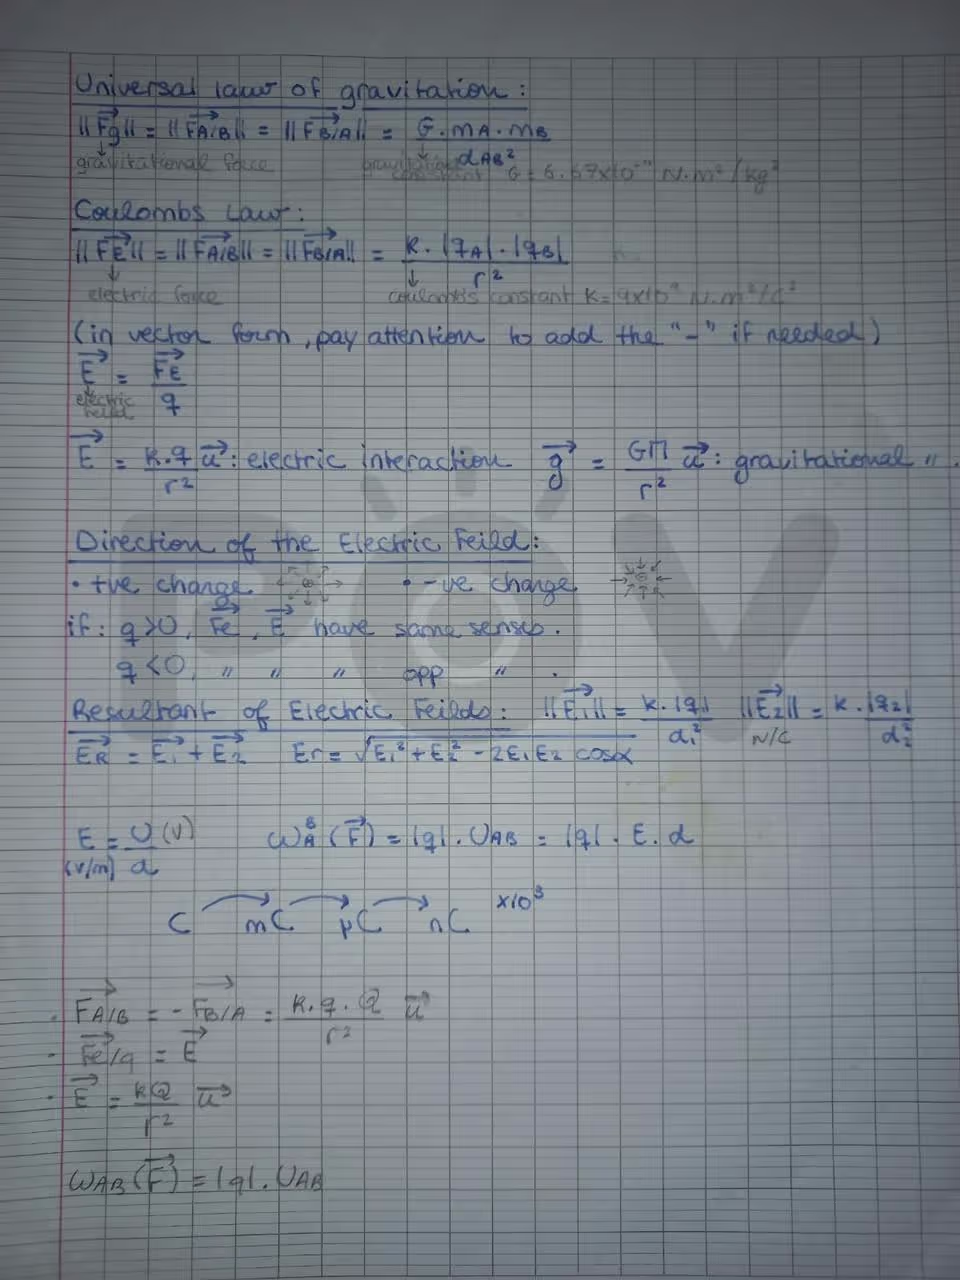 Universal law of gravitation:
||Fg|| = ||FA/B|| = ||FB/A|| = G.mA.mB / dAB²
gravitational force gravitation constant G = 6.67x10⁻¹¹ N.m²/kg²
Coulombs Law:
||FE|| = ||FA/B|| = ||FB/A|| = K.|qA|.|qB| / r²
electric force coulomb's constant K=9x10⁹ N.m²/C²
(in vector form, pay attention to add the "-" if needed)
E = FE / q
electric feild
E = K.q / r² u : electric interaction g = GM / r² u : gravitational " .
Direction of the Electric Feild:
• +ve charge • -ve charge
if : q>0, Fe, E have same senses.
q<0, " " " opp " .
Resultant of Electric Feilds: ||E1|| = K.|q1| / d1² ||E2|| = K.|q2| / d2²
N/C
ER = E1 + E2 Er = √E1² + E2² - 2E1E2 cosα
E = U (V) / d (V/m) WAB (F) = |q|.UAB = |q|.E.d
C mC µC nC x10³
FA/B = - FB/A = K.q.Q / r² u
- Fe/q = E
- E = KQ / r² u
WAB(F) = |q|.UAB
POV